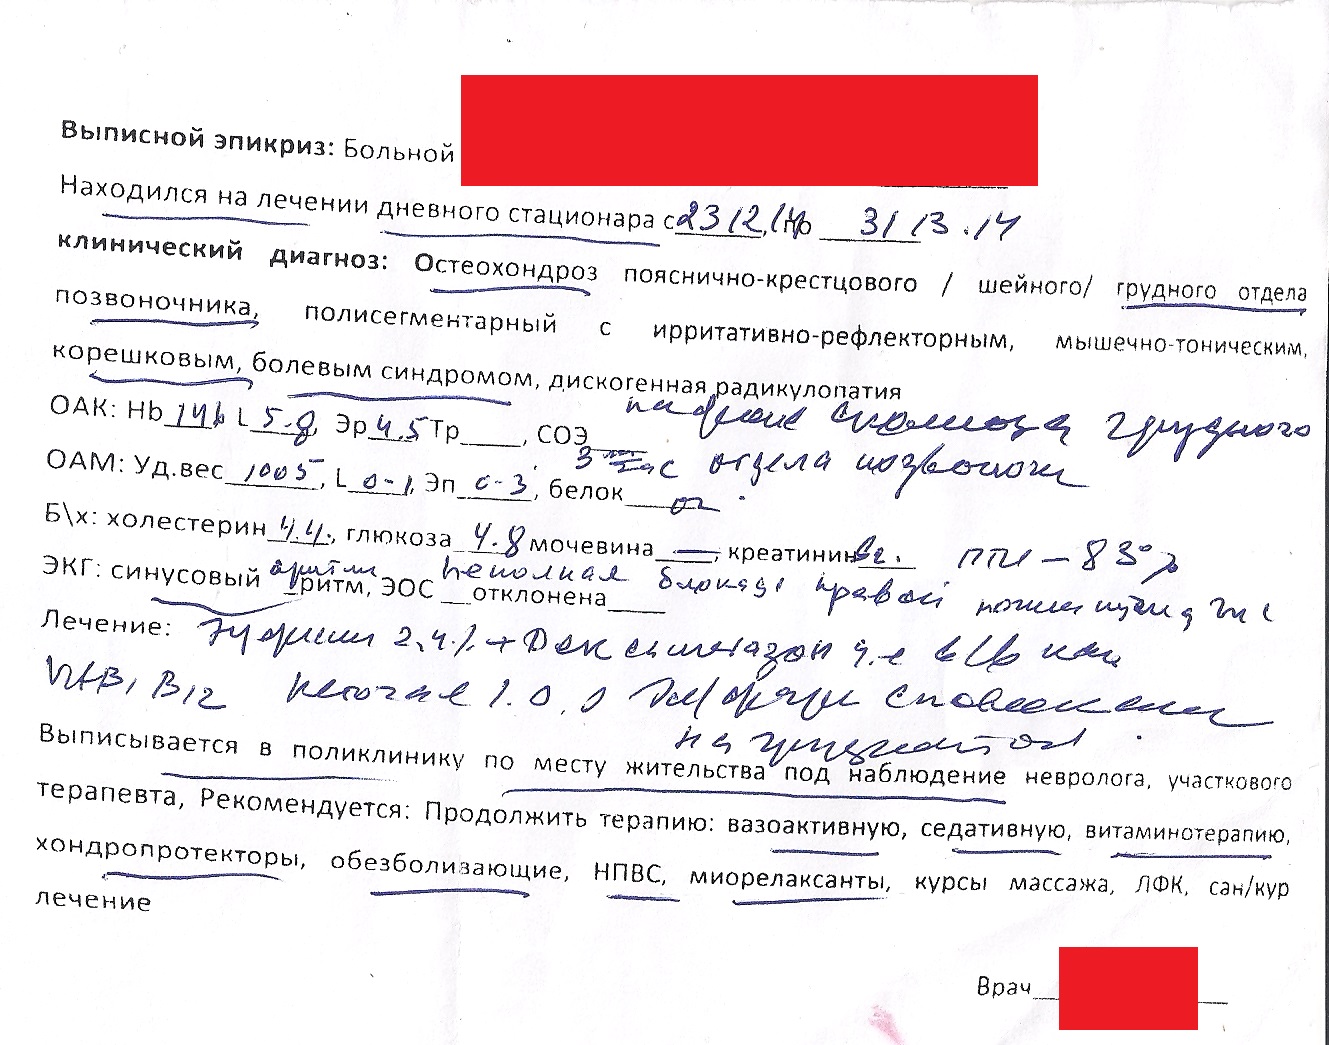 Выписной эпикриз: Больной
Находился на лечении дневного стационара с 23 12, по 31 13.14
клинический диагноз: Остеохондроз пояснично-крестцового / шейного/ грудного отдела
позвоночника, полисегментарный с ирритативно-рефлекторным, мышечно-тоническим,
корешковым, болевым синдромом, дискогенная радикулопатия
на фоне сколиоза грудного
ОАК: Hb 146 L 5.8, Эр 4.5 Тр____, СОЭ
отдела позвоночн
ОАМ: Уд.вес 1005, L 0-1, Эп 0-3, белок
Б\х: холестерин 4.4., глюкоза 4.8 мочевина —, креатинин ПТИ – 83%
неполная блокада правой ножки пучка Гис
ЭКГ: синусовый ритм, ЭОС __отклонена____
Лечение: Эуфиллин 2,4% + Дексаметазон в/в кап
В1, В12 1.0,
на грудной отд
Выписывается в поликлинику по месту жительства под наблюдение невролога, участкового
терапевта, Рекомендуется: Продолжить терапию: вазоактивную, седативную, витаминотерапию,
хондропротекторы, обезболизающие, НПВС, миорелаксанты, курсы массажа, ЛФК, сан/кур
лечение
Врач